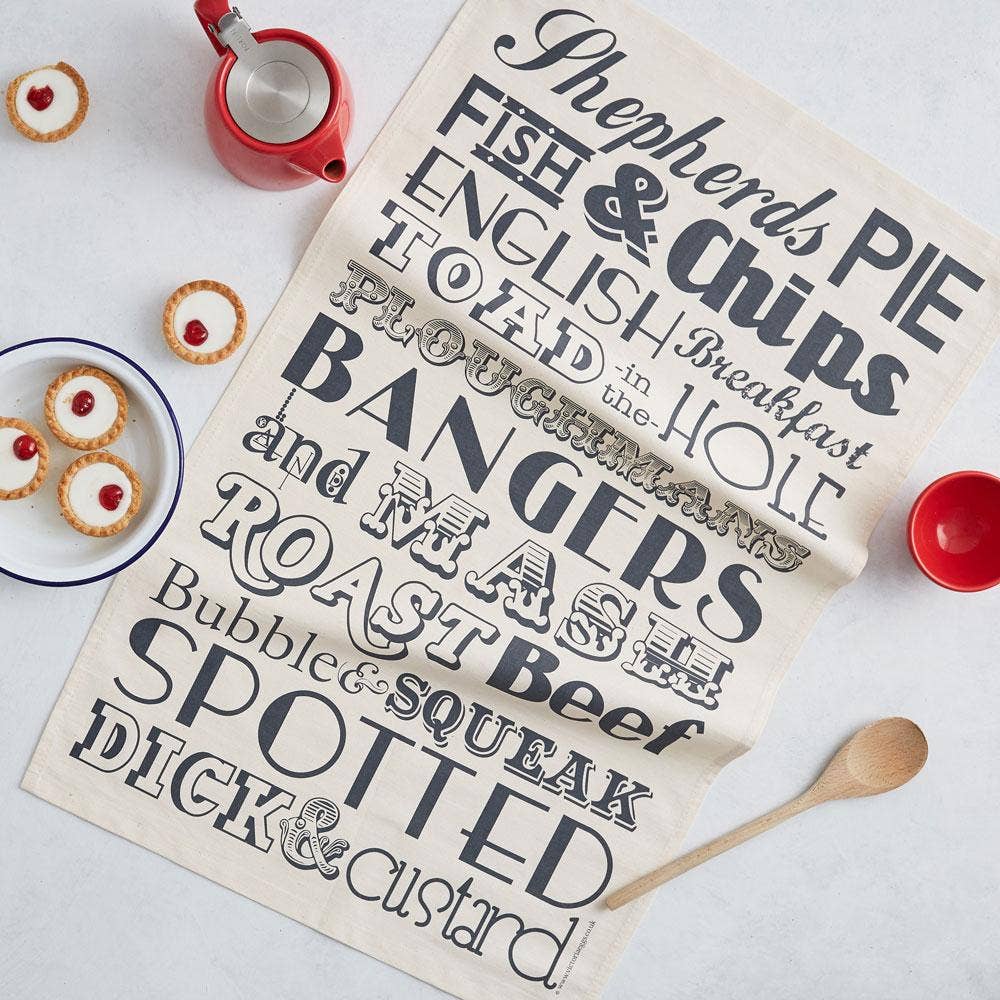 Shepherds PIE
FISH & Chips
ENGLISH Breakfast
TOAD -in the- HOLE
PLOUGHMANS
BANGERS
and MASH
ROAST Beef
Bubble & SQUEAK
SPOTTED
DICK & custard
© www.victoriaeggs.co.uk